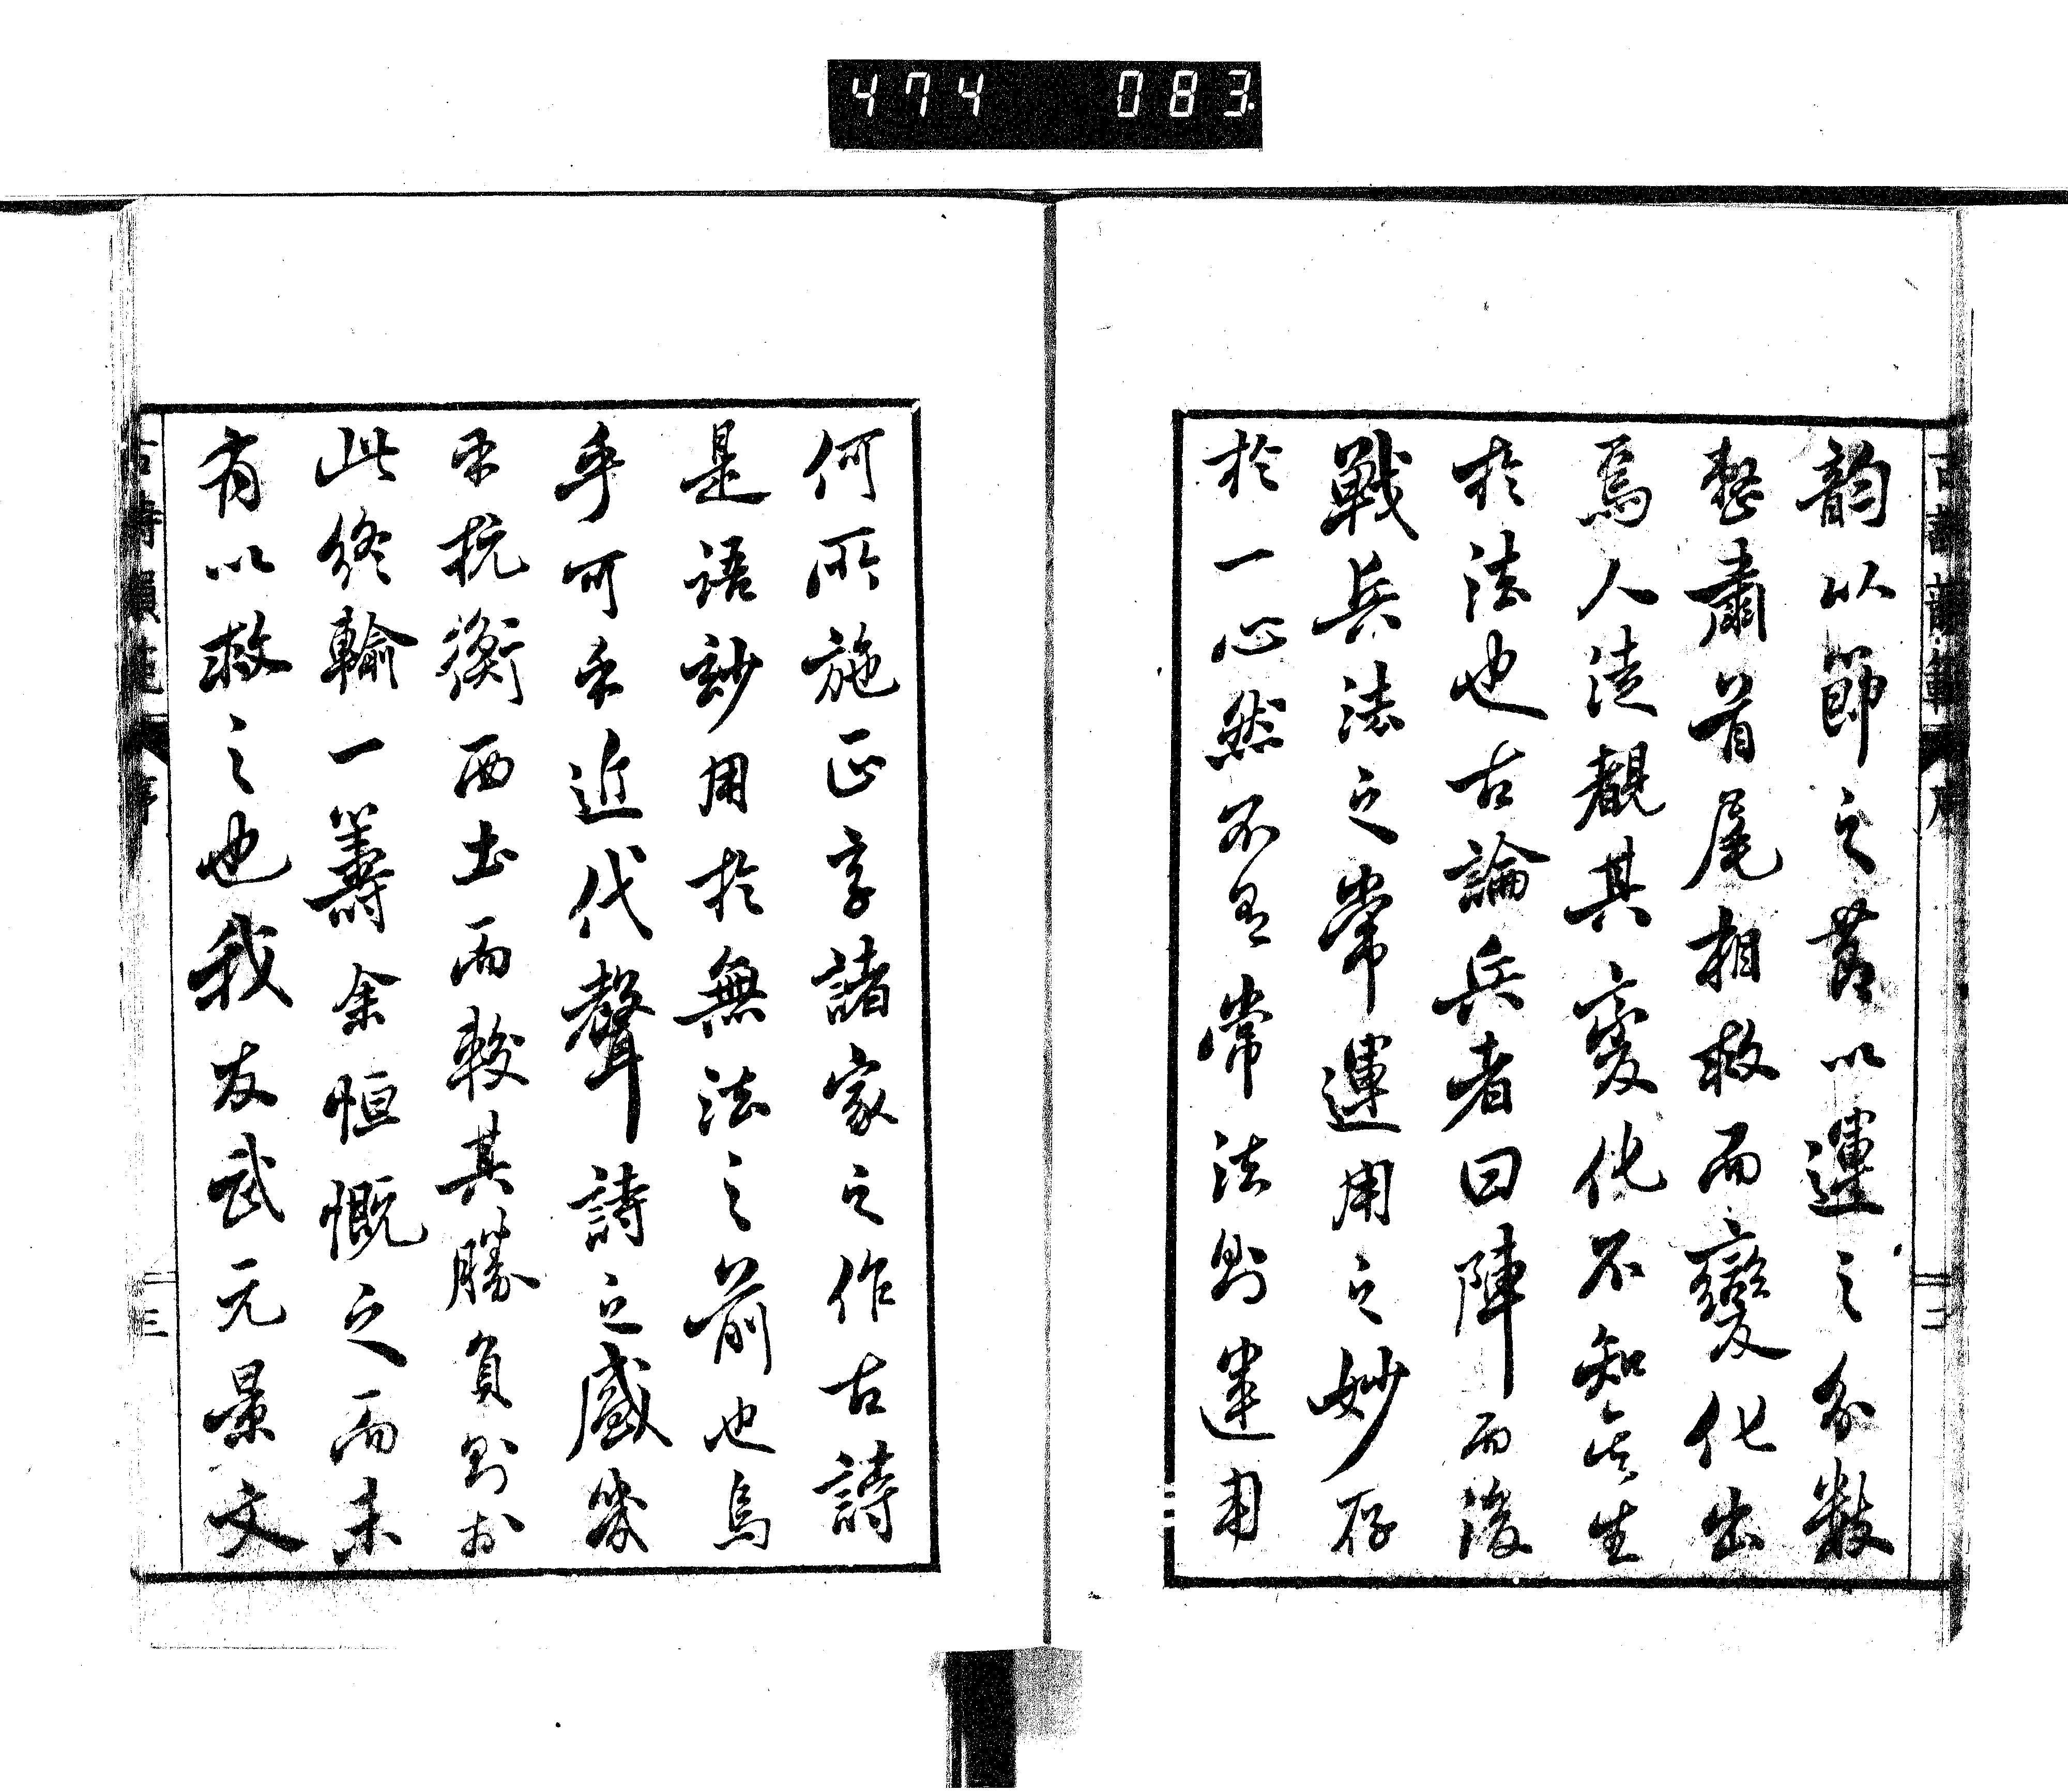 古詩韻範 序 二
韵以節之以運之分数
整肅首尾相救而變化出
焉人徒觀其變化不知其生
於法也古論兵者曰陣而後
戰兵法之常運用之妙存
於一心然不有常法則運用
何所施正享諸家之作古詩
是語妙用於無法之前也烏
乎可可乎近代聲詩之盛幾
乎抗衡西土而較其勝負則於
此終輸一籌余恒慨之而未
有以救之也我友武元景文
古詩韻範 序 三
474 083